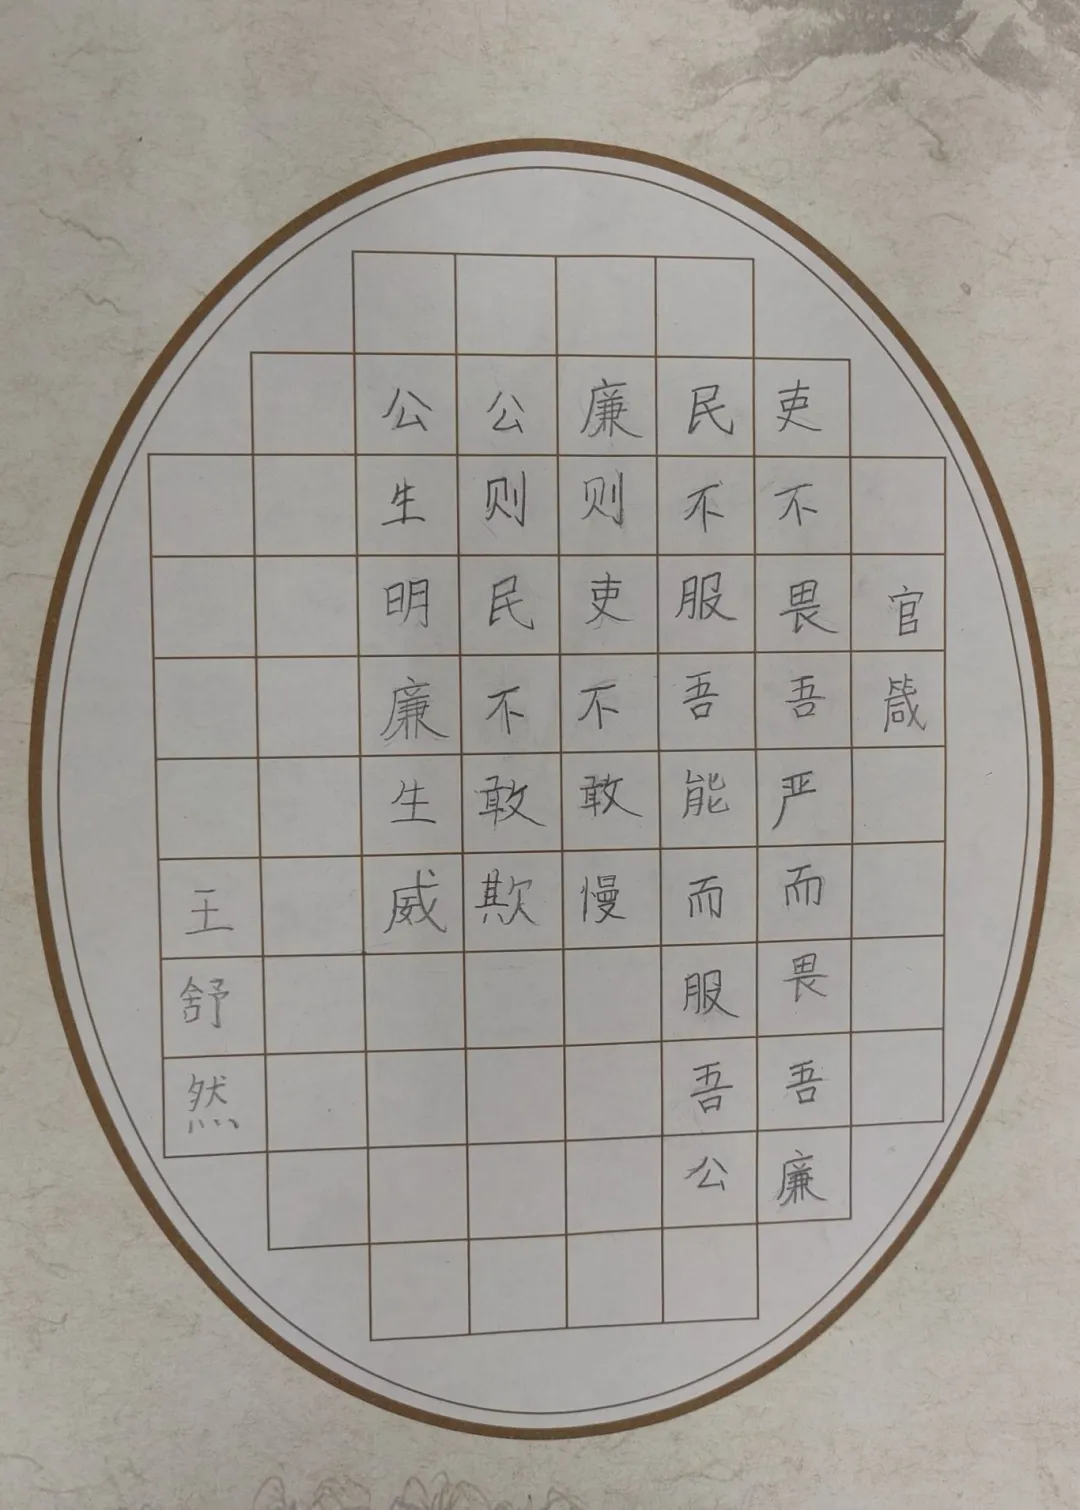 官箴
吏不畏吾严而畏吾廉
民不服吾能而服吾公
廉则吏不敢慢
公则民不敢欺
公生明廉生威
王舒然